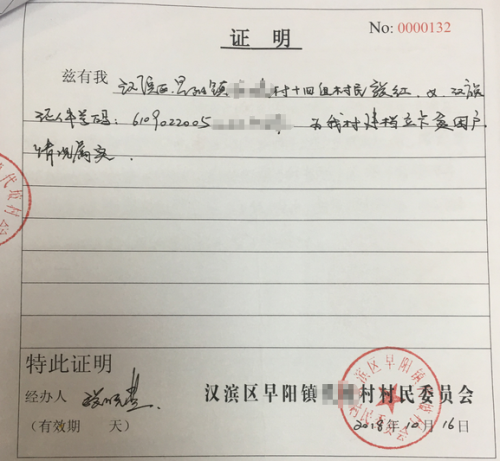 证 明
No: 0000132
兹有我 汉滨区早阳镇 村十四组村民 红，女，汉族
证件号码：6109022005 为我村建档立卡贫困户
情况属实.
特此证明
经办人
汉滨区早阳镇 村村民委员会
（有效期 天）
2018年10月16日
汉滨区早阳镇 村民委员会